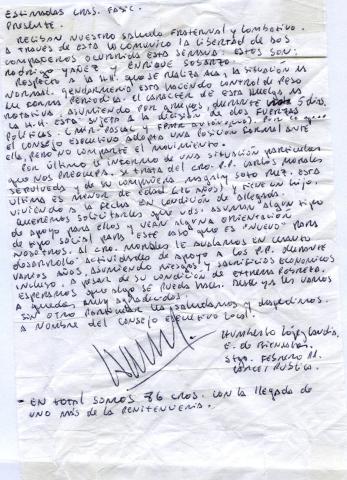 Estimadas Cras. FASIC.
Presente.
Reciban nuestro saludo fraternal y combativo.
A través de esta le comunico la libertad de dos
compañeros ocurrida esta semana. Estos son:
Rodrigo Yañez y Enrique Sosarzo.
Respecto a la H.H. que se realiza acá, la situación es
normal. Gendarmería está haciendo control de peso
en forma periódica. El carácter de esta huelga es
rotativa, asumiendo por grupos, durante 5 días.
La H.H. está sujeta a la decisión de dos fuerzas
políticas. C.MIR-
el Consejo Ejecutivo adopta una posición formal ante
ella, pero no comparte el movimiento.
Por último le informo de una situación particular
que nos preocupa. Se trata del cro. P.P. Carlos Morales
Sepúlveda y de su compañera Magaly Soto Ruz. Esta
última es menor de edad (16 años) y tiene un hijo.
Viviendo a la fecha en condición de allegada.
Queremos solicitarles que uds. asuman algún tipo
de apoyo para ellos y vean alguna orientación
de tipo social para este caso que es "nuevo" para
nosotros. Al cro. Morales le avalamos en cuanto
desarrolló actividades de apoyo a los P.P. durante
varios años, asumiendo riesgos y sacrificios económicos
incluso, a pesar de su condición de extrema pobreza.
Esperamos que algo se pueda hacer. Desde ya les vamos
a quedar muy agradecidos.
Sin otro particular les saludamos y despedimos.
A nombre del Consejo Ejecutivo Local.
Humberto López Candia
E. de Bienestar.
Stgo. Febrero 91.
Cárcel Pública.
- En total somos 76 cros. con la llegada de
uno más de la Penitenciería.